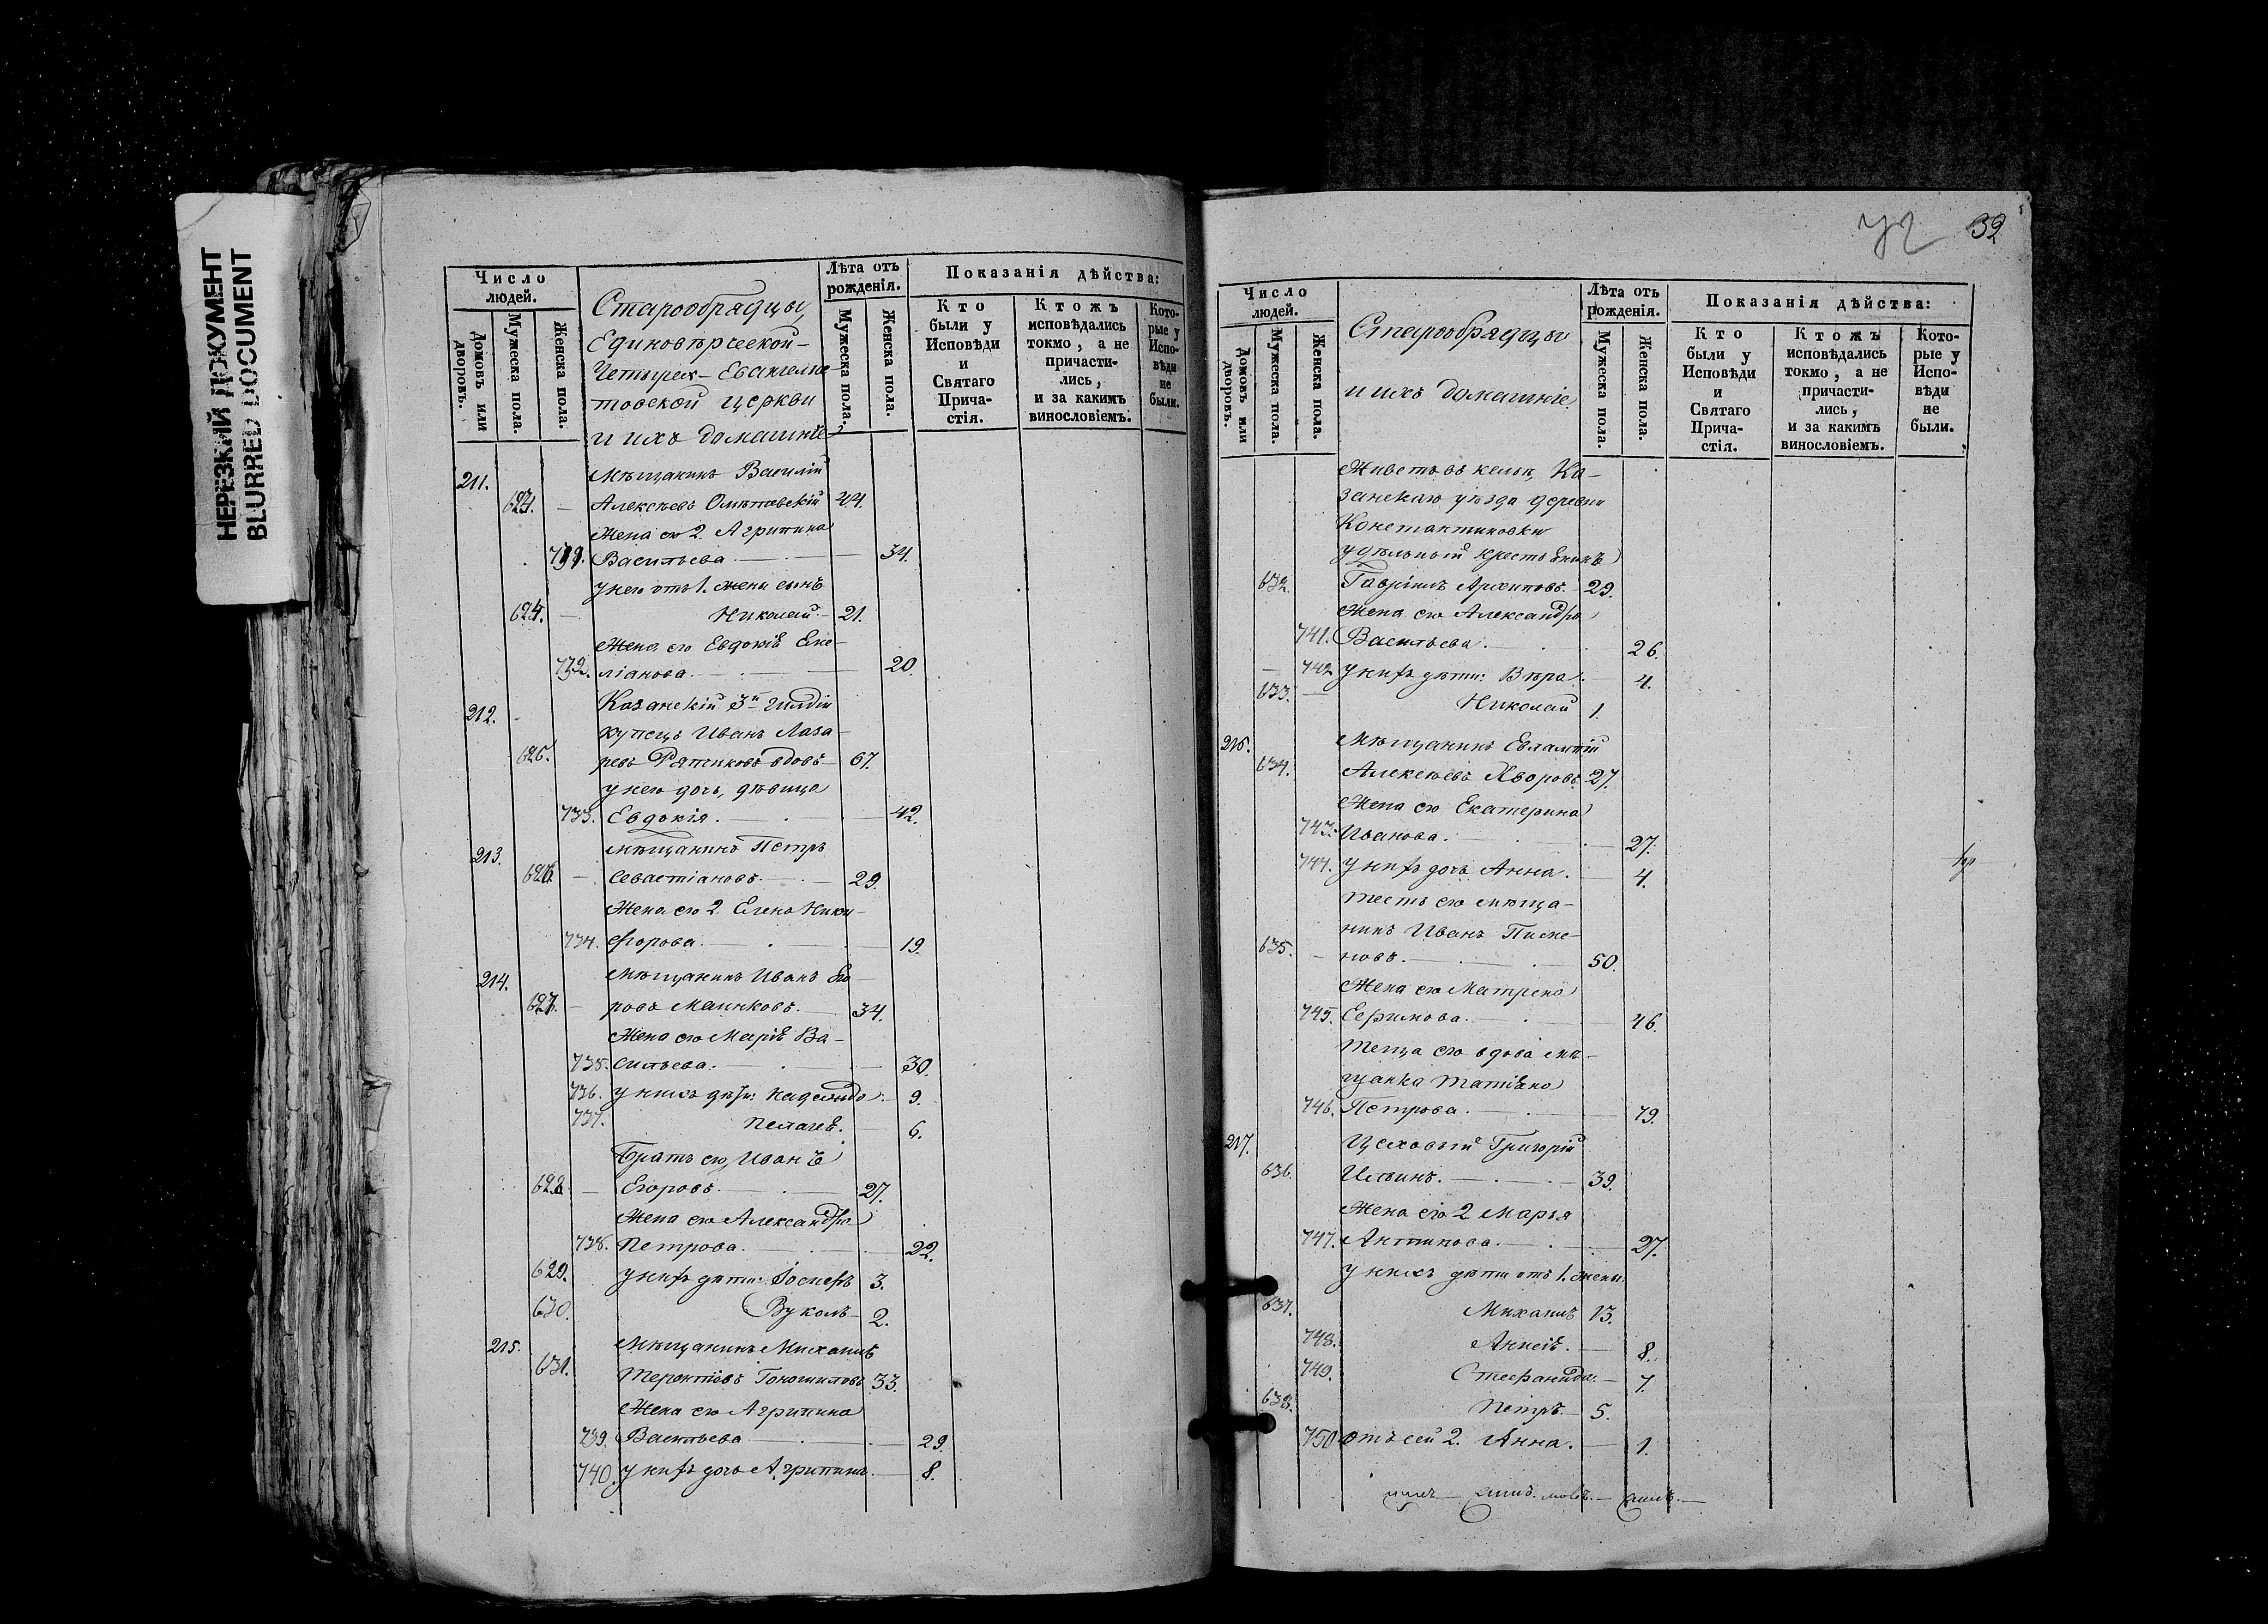 НЕРЕЗКИЙ ДОКУМЕНТ
BLURRED DOCUMENT
Число людей.
Домовъ или дворовъ.
Мужеска пола.
Женска пола.
Старообрядцы,
Единовѣрческой
Четырех-Евангелис-
товской церкви
и ихъ домашніе
Лѣта отъ рожденія.
Мужеска пола.
Женска пола.
Показанія дѣйства:
Кто были у Исповѣди и Святаго Прича-стія.
Ктожъ исповѣдались токмо, а не причасти-лись, и за какимъ винословіемъ.
Кото-рые у Испо-вѣди не были.
211. Мѣщанинъ Василій
Алексѣевъ 44.
Жена его 2. Агрипина
Васильева 34.
у него отъ 1. жены сынъ
624. Николай 21.
Жена его Евдокія Еме-
732. ліанова 20.
212. Казанскій 3й гильдіи
купецъ Иванъ Лаза-
625. ревъ вдовъ 67.
у него дочь, дѣвица
733. Евдокія. 42.
213. Мѣщанинъ Петръ
626. Севастіановъ. 29.
Жена его 2. Елена Ники-
734. форова. 19.
214. Мѣщанинъ Иванъ Его
627. ровъ 34.
Жена его Марія Ва-
735. сильева. 30.
736. у нихъ дѣти: Надежда. 9.
737. Пелагея. 6.
Братъ его, Иванъ
628. Егоровъ. 27.
Жена его Александра
738. Петрова. 22.
629. у нихъ дѣти: Іосифъ 3.
630. Вуколъ 2.
215. Мѣщанинъ Михаилъ
631. Терентіевъ 33.
Жена его Агрипина
739. Васильева 29.
740. у нихъ дочь Агрипина. 8.
32
Число людей.
Домовъ или дворовъ.
Мужеска пола.
Женска пола.
Старообрядцы
и ихъ домашніе
Лѣта отъ рожденія.
Мужеска пола.
Женска пола.
Показанія дѣйства:
Кто были у Исповѣди и Святаго Прича-стія.
Ктожъ исповѣдались токмо, а не причасти-лись, и за какимъ винословіемъ.
Кото-рые у Испо-вѣди не были.
Живетъ въ кельи, Ка-
занскаго уѣзда деревни
Константиновки
удѣльный крестьянинъ
632. Гавріилъ Архиповъ. 29.
Жена его Александра
741. Васильева. 26.
742. у нихъ дѣти: Вѣра. 4.
633. Николай 1.
216. Мѣщанинъ Евлампій
634. Алексѣевъ Хворовъ. 27.
Жена его Екатерина
743. Иванова. 27.
744. у нихъ дочь Анна. 4.
Тесть его мѣща-
нинъ Иванъ Пиме-
635. новъ. 50.
Жена его Матрена
745. Ефимова. 46.
Теща его вдова мѣ-
щанка Татіана
746. Петрова. 79.
217. Цеховый Григорій
636. Ильинъ. 39.
Жена его 2 Марья
747. Антипова. 27.
у нихъ дѣти отъ 1. жены
637. Михаилъ 13.
748. 8.
749. Стефанида. 7.
638. Петръ. 5.
750. отъ сей 2. Анна. 1.